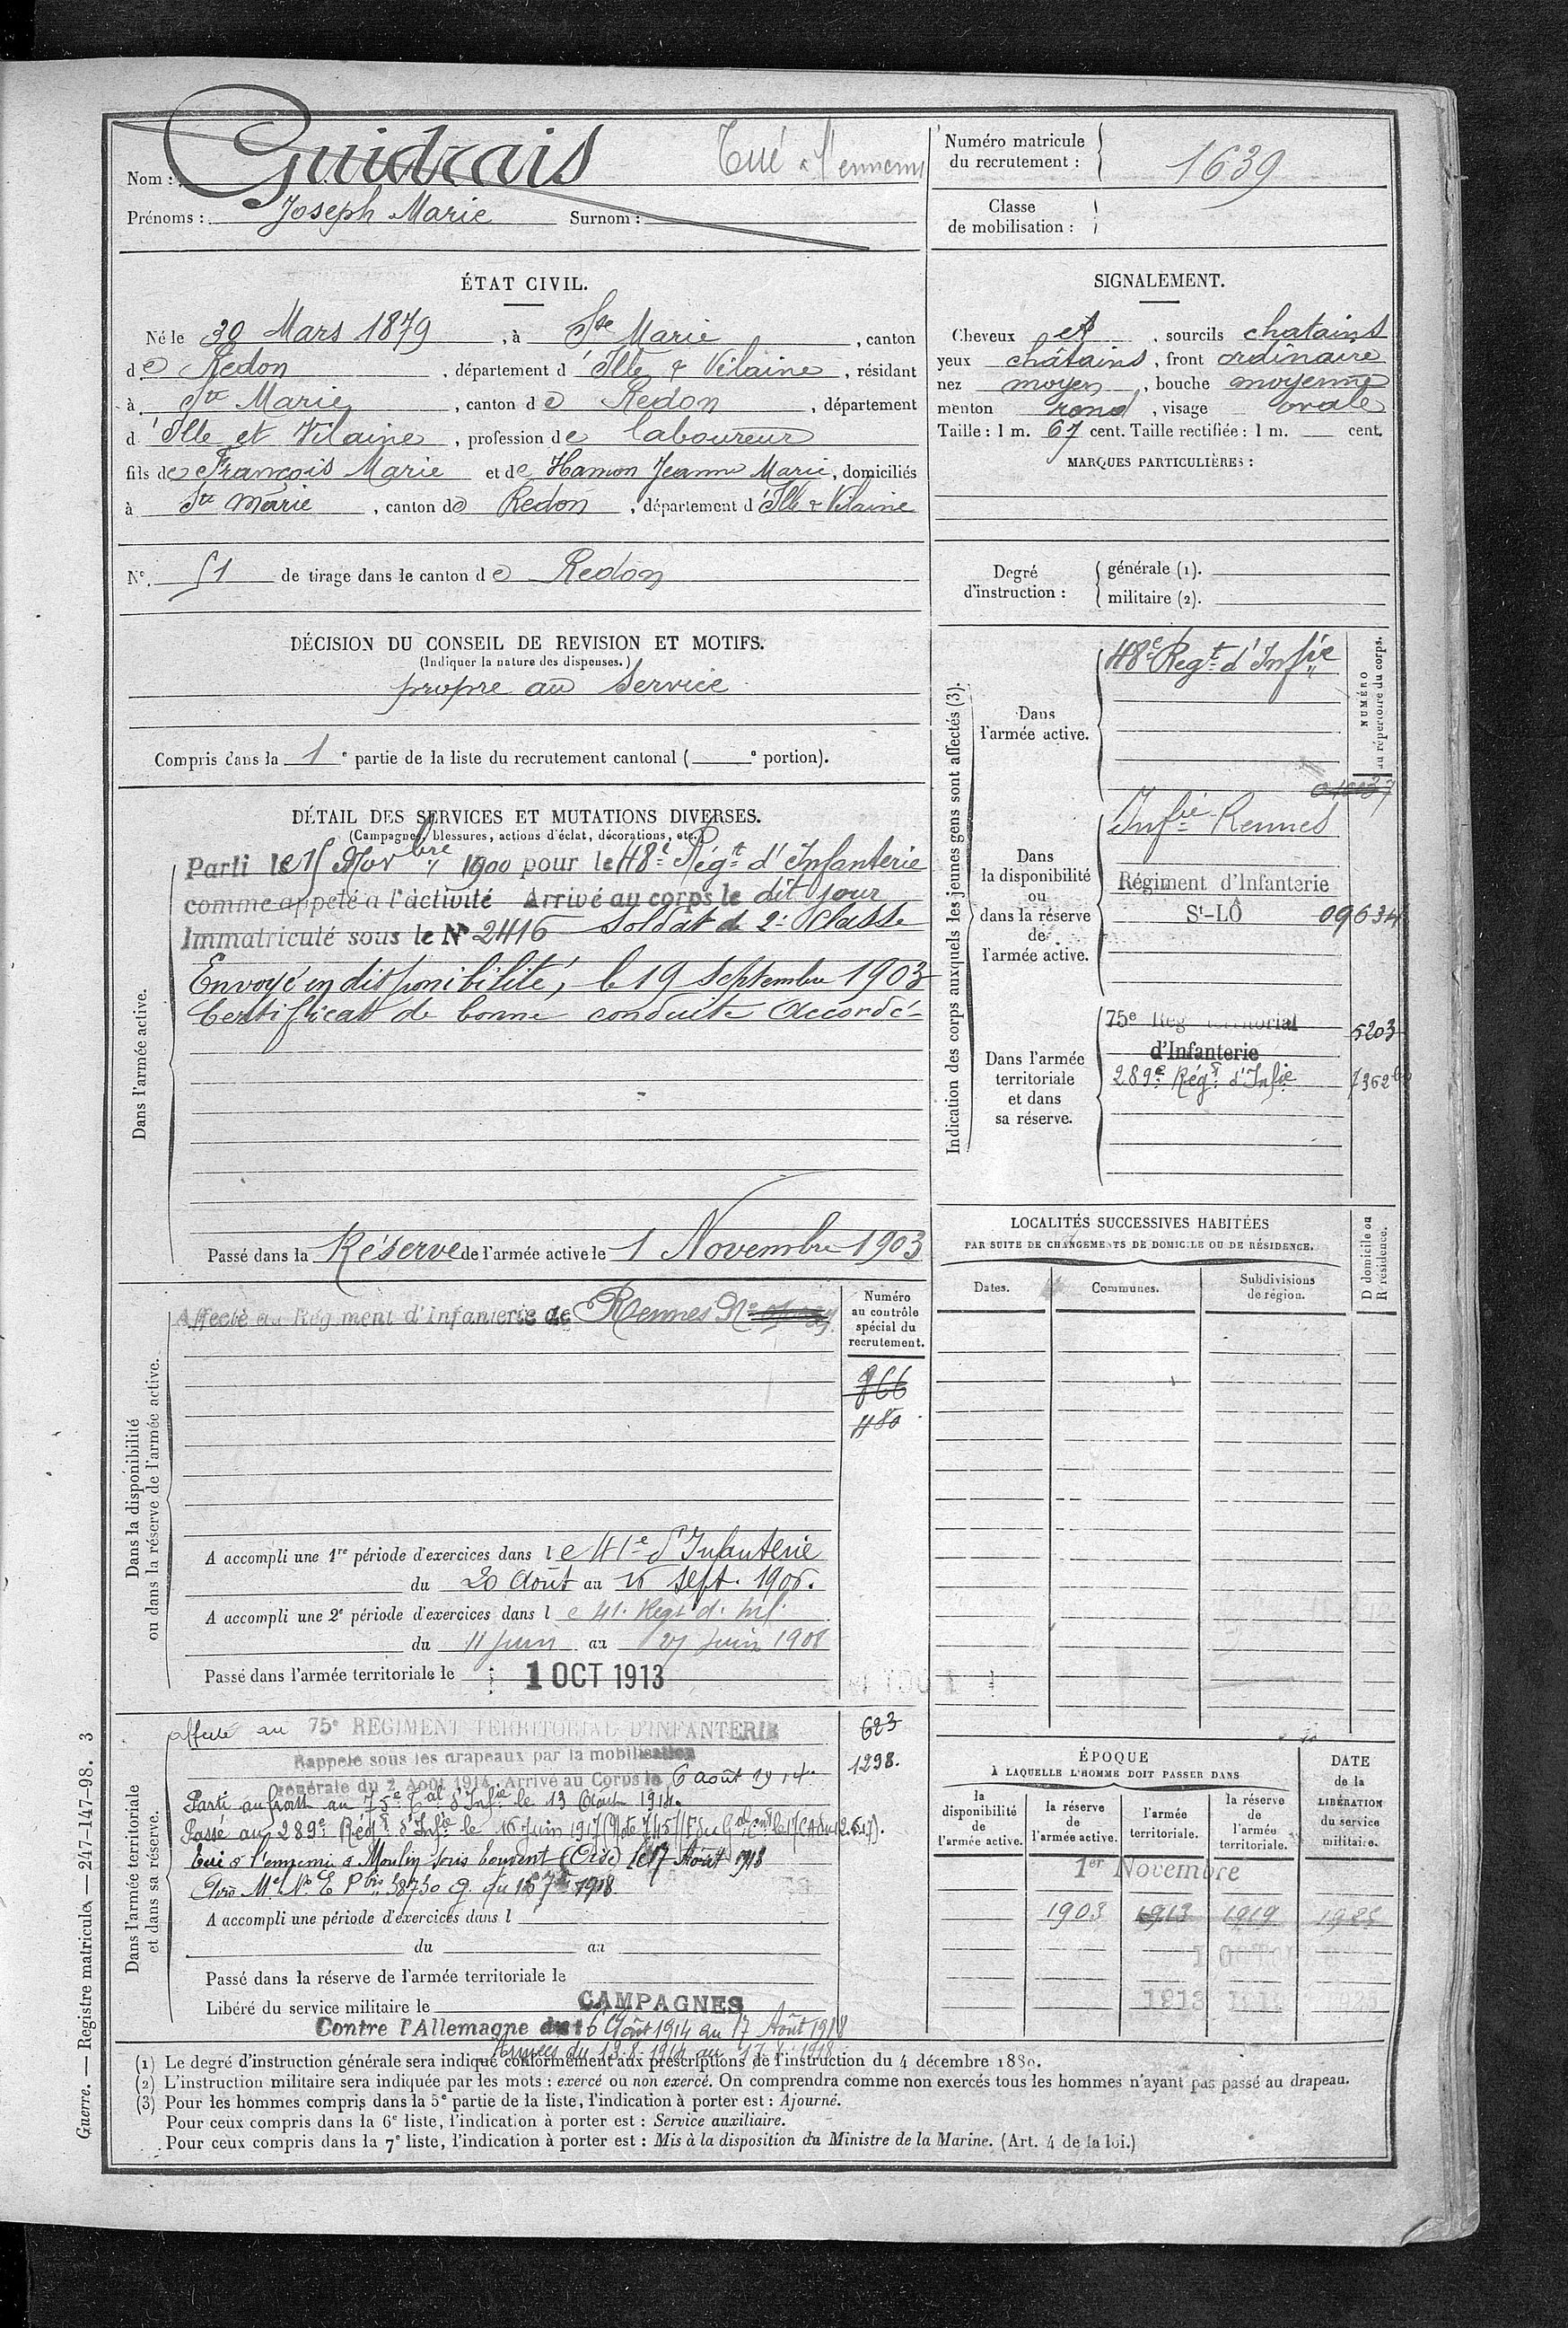 Nom : Guidrais Tué à l'ennemi
Prénoms : Joseph Marie Surnom :
Numéro matricule du recrutement : 1639
Classe de mobilisation :
ÉTAT CIVIL.
Né le 30 Mars 1879, à Ste Marie, canton
de Redon, département d'Ille & Vilaine, résidant
à Ste Marie, canton de Redon, département
d'Ille et Vilaine, profession de laboureur
fils de François Marie et de Hamon Jeanne Marie, domiciliés
à Ste Marie, canton de Redon, département d'Ille & Vilaine
N°. 51 de tirage dans le canton de Redon
SIGNALEMENT.
Cheveux et, sourcils chatains
yeux châtains, front ordinaire
nez moyen, bouche moyenne
menton rond, visage ovale
Taille : 1 m. 67 cent. Taille rectifiée : 1 m. — cent.
MARQUES PARTICULIÈRES :
Degré d'instruction : générale (1).
militaire (2).
DÉCISION DU CONSEIL DE REVISION ET MOTIFS.
(Indiquer la nature des dispenses.)
propre au service
Compris dans la 1e partie de la liste du recrutement cantonal (e portion).
DÉTAIL DES SERVICES ET MUTATIONS DIVERSES.
(Campagnes, blessures, actions d'éclat, décorations, etc.)
Dans l'armée active.
Parti le 15 Novbre 1900 pour le 48e Régt d'Infanterie
comme appelé à l'activité Arrivé au corps le dit jour
Immatriculé sous le N° 2416 Soldat de 2e Classe
Envoyé en disponibilité, le 19 Septembre 1903
Certificat de bonne conduite Accordé
Passé dans la Réserve de l'armée active le 1 Novembre 1903
Indication des corps auxquels les jeunes gens sont affectés (3).
NUMÉRO au répertoire du corps.
Dans l'armée active.
48e Regt d'Infie
Dans la disponibilité ou dans la réserve de l'armée active.
Infie Rennes
Régiment d'Infanterie
St-LÔ 09634
Dans l'armée territoriale et dans sa réserve.
75e Rég territorial 5203
d'Infanterie
289e Régt d'Infie
LOCALITÉS SUCCESSIVES HABITÉES
PAR SUITE DE CHANGEMENTS DE DOMICILE OU DE RÉSIDENCE.
D domicile ou R résidence.
Dates. Communes. Subdivisions de région.
Dans la disponibilité ou dans la réserve de l'armée active.
Affecté au Régiment d'Infanterie de Rennes N°
Numéro au contrôle spécial du recrutement.
866
480
A accompli une 1re période d'exercices dans le 41e d'Infanterie
du 20 Août au 16 Sept. 1906.
A accompli une 2e période d'exercices dans le 41e Regt d'Inf
du 11 Juin au 27 Juin 1908
Passé dans l'armée territoriale le 1 OCT 1913
Dans l'armée territoriale et dans sa réserve.
affecté au 75e REGIMENT TERRITORIAL D'INFANTERIE 623
Rappelé sous les drapeaux par la mobilisation 1298.
générale du 2 Août 1914. Arrivé au Corps le 6 août 1914
Parti au front au 75e Tal d'Infie le 13 Août 1914.
Passé au 289e Régt d'Infie le 16 Juin 1917
Tué à l'ennemi à Moulin sous Touvent (Oise) le 17 Août 1918
A accompli une période d'exercices dans l
du au
Passé dans la réserve de l'armée territoriale le
Libéré du service militaire le
CAMPAGNES
Contre l'Allemagne du 6 Août 1914 au 17 Août 1918
Armées du 13-8-1914 au 17-8-1918
ÉPOQUE
À LAQUELLE L'HOMME DOIT PASSER DANS
la disponibilité de l'armée active. la réserve de l'armée active. l'armée territoriale. la réserve de l'armée territoriale.
DATE de la LIBÉRATION du service militaire.
1er Novembre
1903 1913 1919 1925
1913
(1) Le degré d'instruction générale sera indiqué conformément aux prescriptions de l'instruction du 4 décembre 1889.
(2) L'instruction militaire sera indiquée par les mots : exercé ou non exercé. On comprendra comme non exercés tous les hommes n'ayant pas passé au drapeau.
(3) Pour les hommes compris dans la 5e partie de la liste, l'indication à porter est : Ajourné.
Pour ceux compris dans la 6e liste, l'indication à porter est : Service auxiliaire.
Pour ceux compris dans la 7e liste, l'indication à porter est : Mis à la disposition du Ministre de la Marine. (Art. 4 de la loi.)
Guerre. — Registre matricule. — 247-147-98. 3